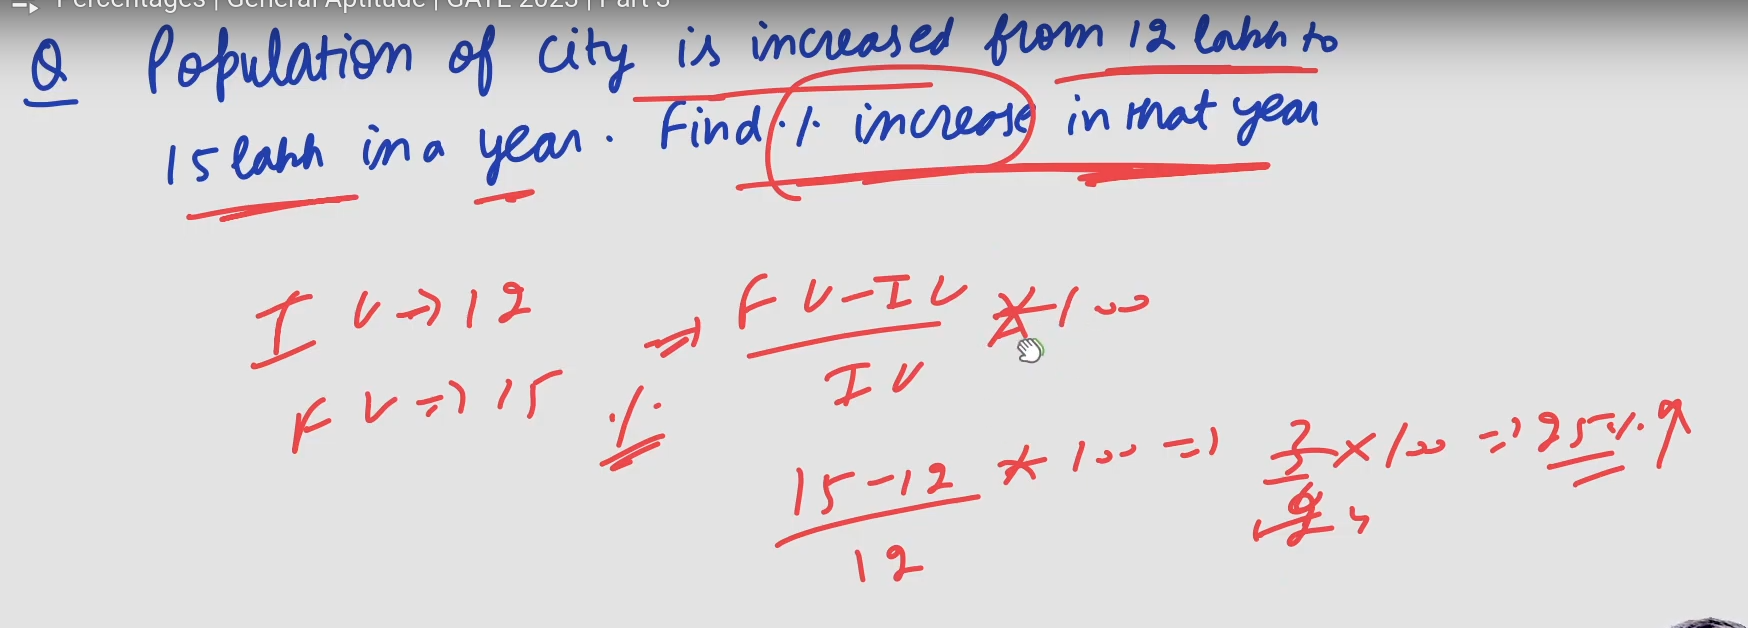 Percentages | General Aptitude | GATE 2023 | Part 3
Q Population of city is increased from 12 lakh to
15 lakh in a year. Find % increase in that year
I V → 12
F V => 15
% => FV-IV/IV * 100
15-12/12 * 100 => 3/12 4 × 100 => 25% ↑